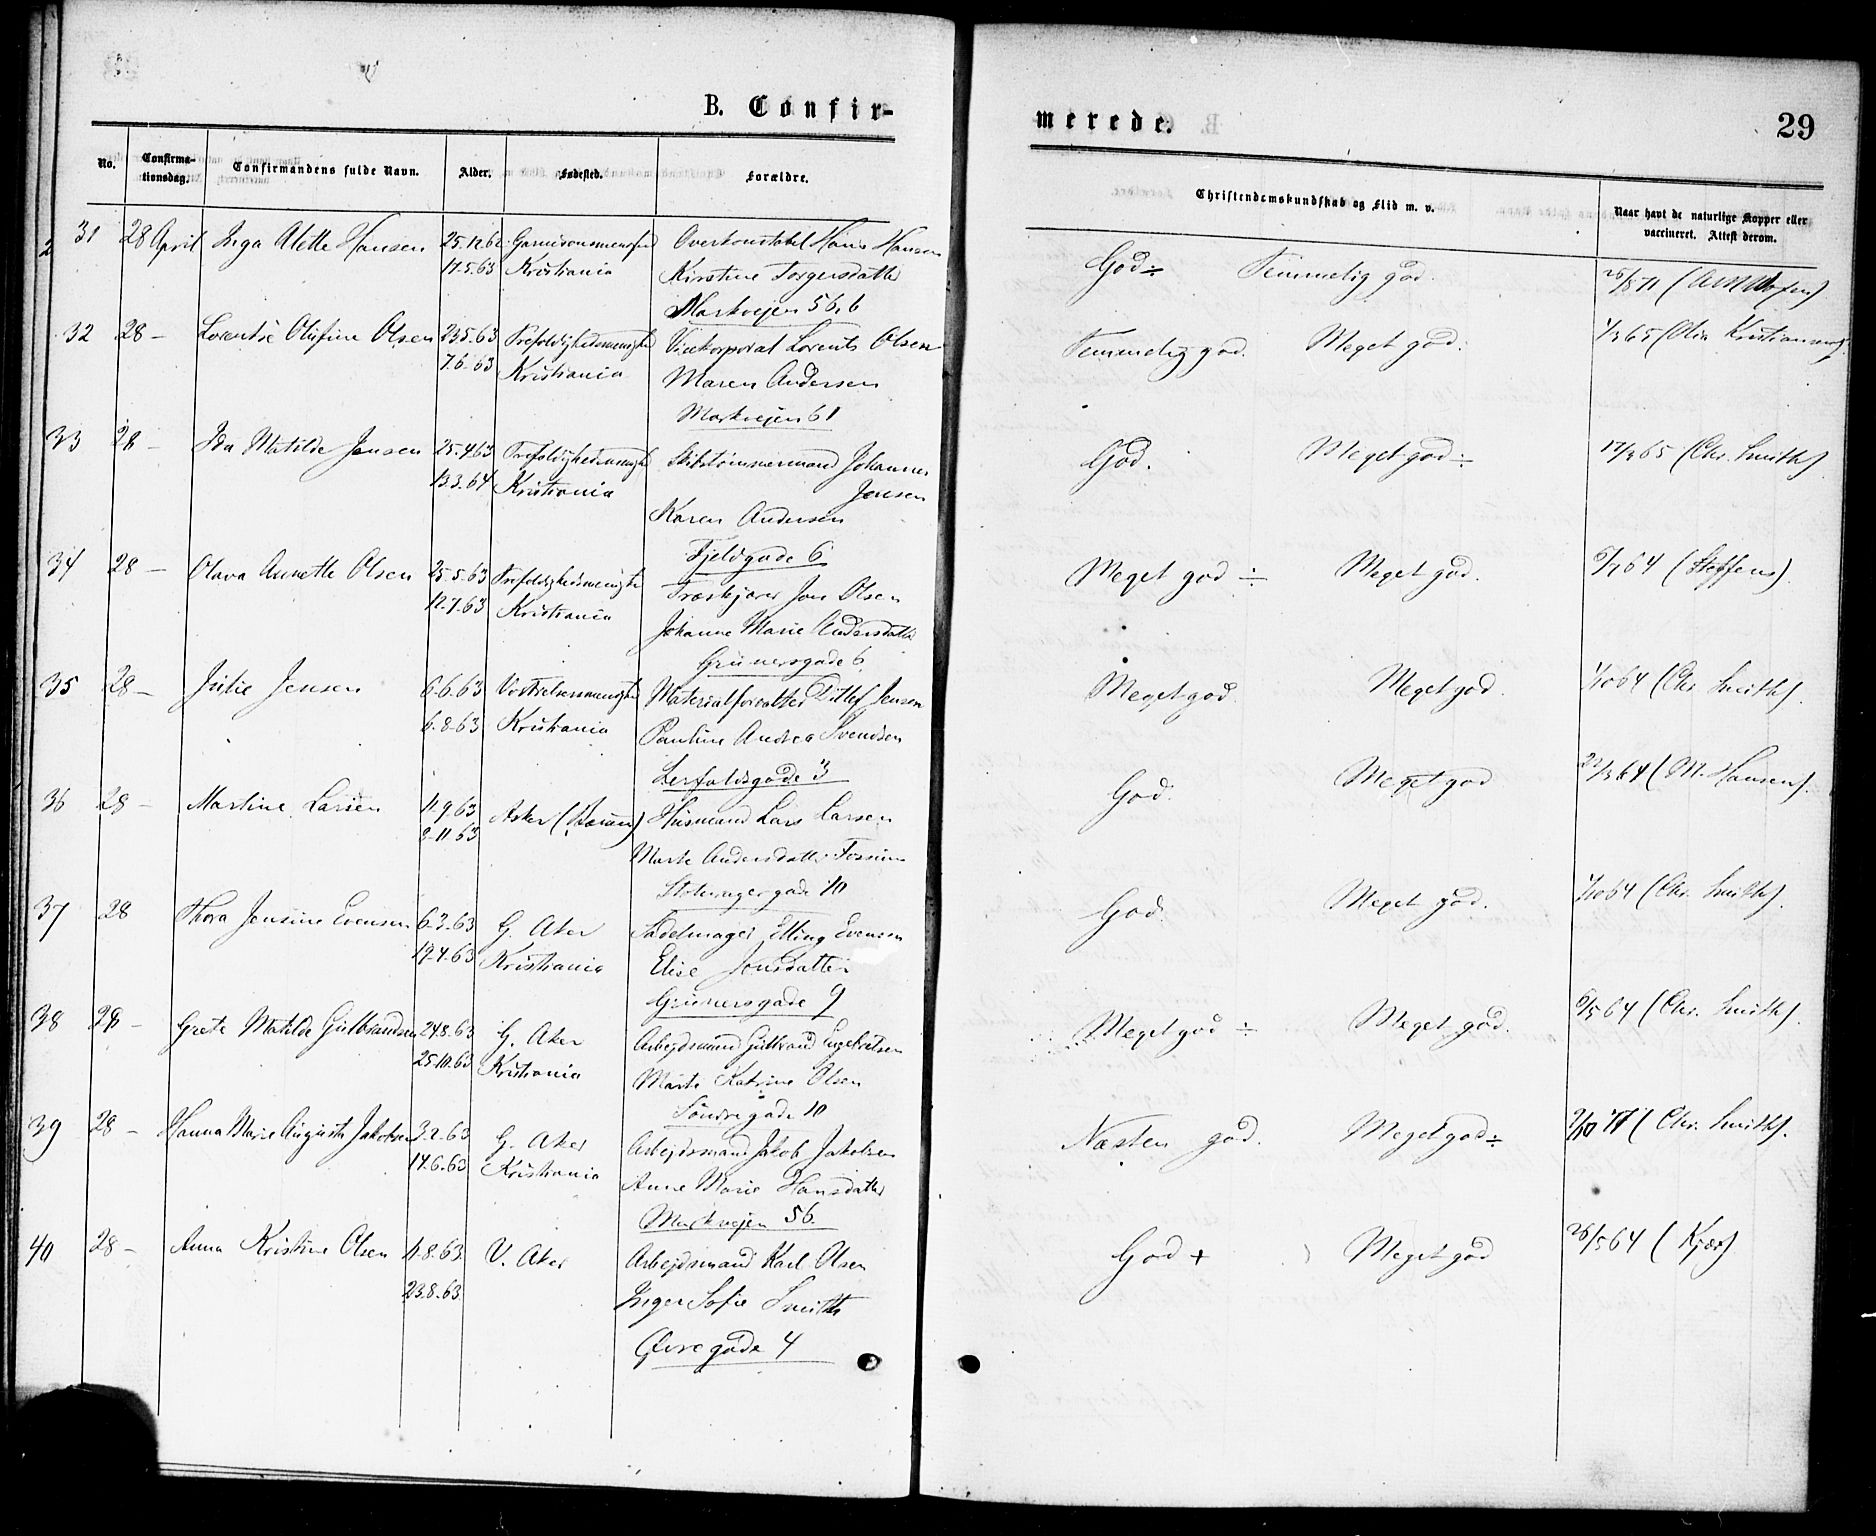 B. Confir-
merede.
29
No.
Confirma-
tionsdag.
Confirmandens fulde Navn.
Alder.
Fødested.
Forældre.
Christendomskundskab og Flid m. v.
Naar havt de naturlige Kopper eller
vaccineret. Attest derom.
31 28 April Inga Alette Hansen 25.12.62 Garnisonsmenighed Overkonstabel Hans Hansen
17.5.63 Kristiania Kirstine Torgersdatter
Markvejen 56, b
God ÷ Temmelig god.
32 28 - Lorentse Olufine Olsen 23.5.63 Trefoldighedsmenighed Vicekorporal Lorents Olsen
7.6.63 Kristiania Maren Andersen
Markvejen 61
Temmelig god. Meget god. 1/3 65 (Olia Kristiansen)
33 28 - Ida Matilde Jensen 25.4.63 Trefoldighedsmenighed Skibstømmermand Johannes
13.3.64 Kristiania Jensen
Karen Andersen
Fjeldgade 6
God. Meget god ÷ 17/3 65 (Chr. Smith)
34 28 - Olava Annette Olsen 25.5.63 Trefoldighedsmenighed Træskjærer Jon Olsen
12.7.63 Kristiania Johanne Marie Andersdatter
Grünersgade 6
Meget god ÷ Meget god. 6/7 64 (Steffens).
35 28 - Julie Jensen 6.6.63 Vor Frelsersmenighed Materialforvalter Ditlef Jensen
6.8.63 Kristiania Pauline Andrea Svendsen
Lerfaldsgade 3
Meget god. Meget god. 1/10 64 (Chr. Smith).
36 28 - Martine Larsen 11.9.63 Asker (Bærum) Husmand Lars Larsen
8.11.63 Marte Andersdatter Fossum
Stolmagergade 10
God. Meget god 22/3 64 (M. Hansen).
37 28 Thora Jensine Evensen 6.3.63 G. Aker Sadelmager Elling Evensen
19.4.63 Kristiania Elise Jonsdatter
Grünersgade 9
God. Meget god. 1/10 64 (Chr. Smith).
38 28 - Grete Matilde Gulbrandsen 24.8.63 G. Aker Arbejdsmand Gulbrand Engebretsen
25.10.63 Kristiania Marte Katrine Olsen
Søndregade 10
Meget god ÷ Meget god. 6/5 64 (Chr. Smith).
39 28 - Hanna Marie Augusta Jakobsen 3.2.63 G. Aker Arbejdsmand Jakob Jakobsen
14.6.63 Kristiania Anne Marie Hansdatter
Markvejen 56.
Næsten god. Meget god ÷ 9/10 77 (Chr. Smith).
40 28 - Anna Kristine Olsen 4.8.63. V. Aker Arbejdsmand Karl Olsen
23.8.63. Inger Sofie Smith
Øvregade 4
God + Meget god 26/5 64 (Kjær)